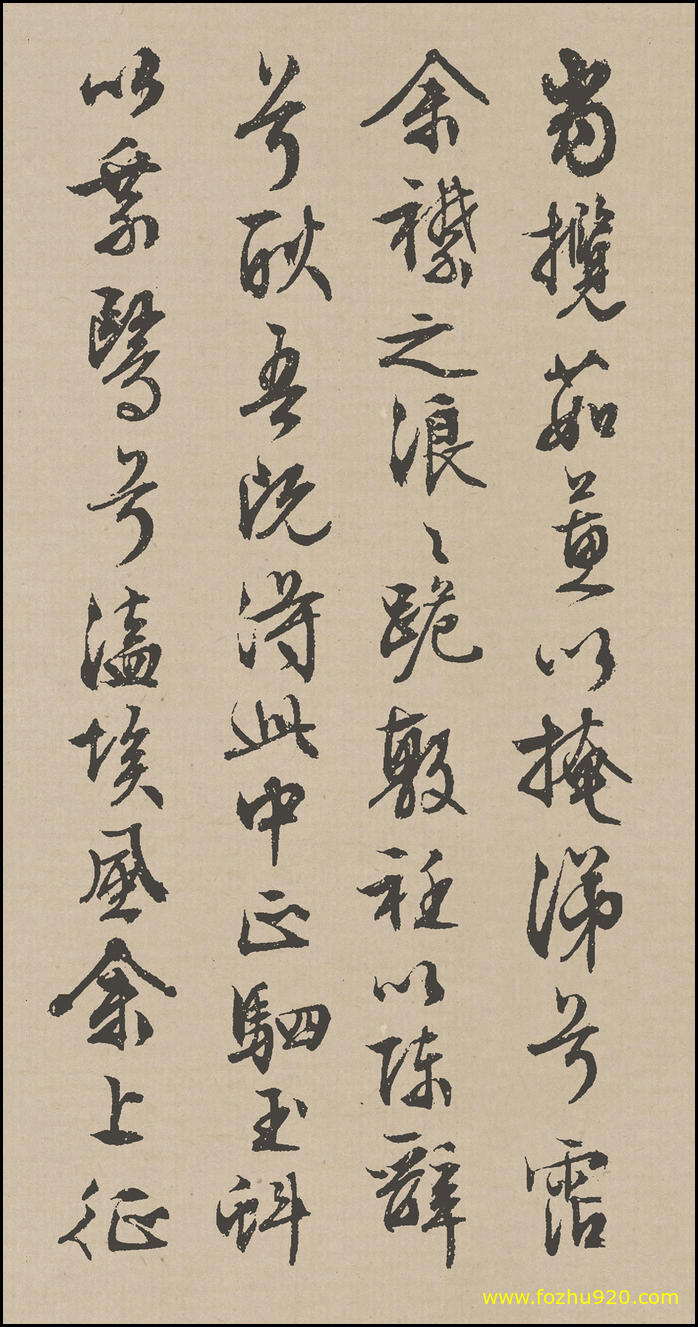 當攬茹蕙以掩涕兮霑
余襟之浪〻跪敷衽以陳辭
兮耿吾既得此中正駟玉虯
以乘鷖兮溘埃風余上征
www.fozhu920.com